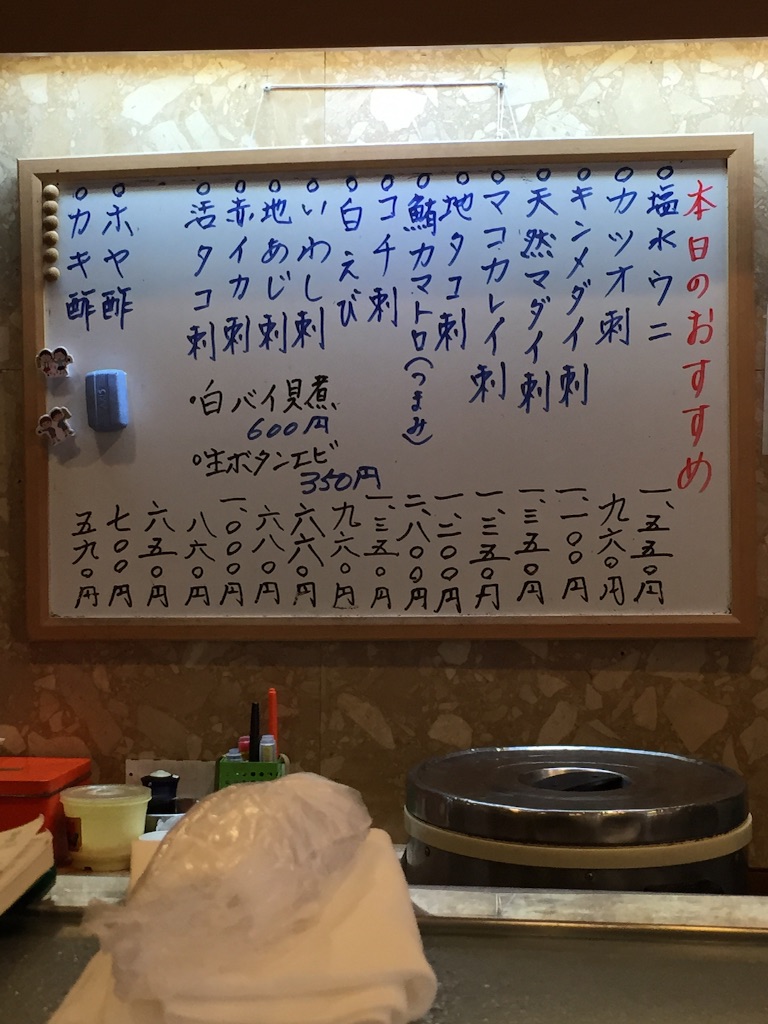 本日のおすすめ
○塩水ウニ 一、五五〇円
○カツオ刺 九六〇円
○キンメダイ刺 一、一〇〇円
○天然マダイ刺 一、三五〇円
○マコカレイ刺 一、三五〇円
○地タコ刺 一、二〇〇円
○鮪カマトロ(つまみ) 二、八〇〇円
○コチ刺 一、三五〇円
○白えび 九六〇円
○いわし刺 六六〇円
○地あじ刺 六八〇円
○赤イカ刺 一、〇〇〇円
○活タコ刺 八六〇円
六五〇円
○ホヤ酢 七〇〇円
○カキ酢 五九〇円
・白バイ貝煮
600円
・生ボタンエビ
350円